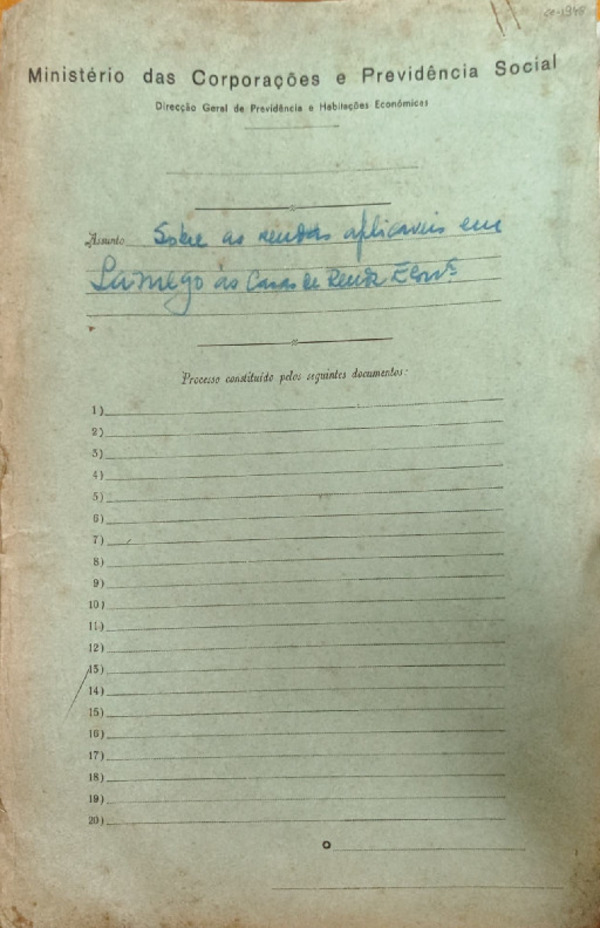 Ministério das Corporações e Previdência Social
Direcção Geral de Previdência e Habitações Económicas
Assunto Sobre as rendas aplicaveis em
Lamego às Casas de Renda Econ.ca
Processo constituído pelos seguintes documentos:
1)
2)
3)
4)
5)
6)
7)
8)
9)
10)
11)
12)
13)
14)
15)
16)
17)
18)
19)
20)
O